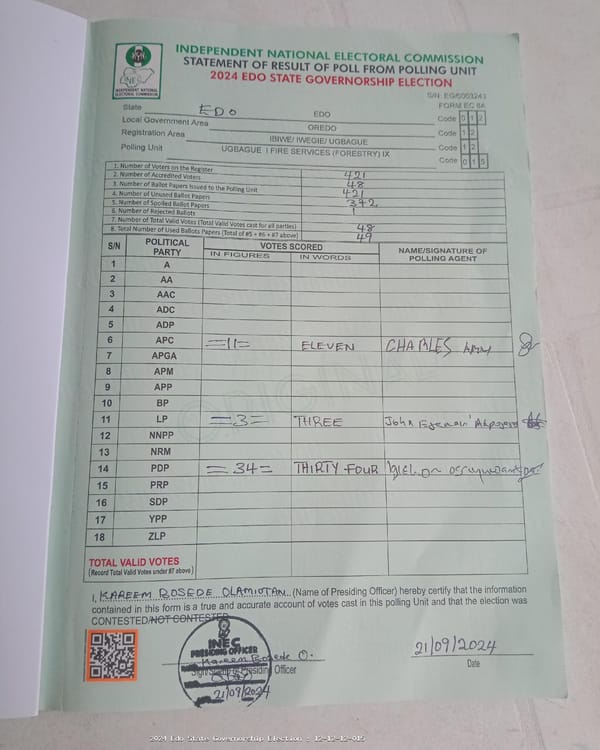 INDEPENDENT NATIONAL ELECTORAL COMMISSION
STATEMENT OF RESULT OF POLL FROM POLLING UNIT
2024 EDO STATE GOVERNORSHIP ELECTION
INEC
INDEPENDENT NATIONAL
ELECTORAL COMMISSION
S/N: EG/0003243
FORM EC 8A
State EDO EDO Code 0 1 2
Local Government Area OREDO Code 1 2
Registration Area IBIWE/ IWEGIE/ UGBAGUE Code 1 2
Polling Unit UGBAGUE I FIRE SERVICES (FORESTRY) IX Code 0 1 5
1. Number of Voters on the Register 421
2. Number of Accredited Voters 48
3. Number of Ballot Papers Issued to the Polling Unit 421
4. Number of Unused Ballot Papers 372
5. Number of Spoiled Ballot Papers 1
6. Number of Rejected Ballots
7. Number of Total Valid Votes (Total Valid Votes cast for all parties) 48
8. Total Number of Used Ballots Papers (Total of #5 + #6 + #7 above) 49
S/N POLITICAL PARTY VOTES SCORED NAME/SIGNATURE OF POLLING AGENT
IN FIGURES IN WORDS
1 A
2 AA
3 AAC
4 ADC
5 ADP
6 APC =11= ELEVEN CHARLES
7 APGA
8 APM
9 APP
10 BP
11 LP =3= THREE John
12 NNPP
13 NRM
14 PDP =34= THIRTY FOUR
15 PRP
16 SDP
17 YPP
18 ZLP
ORIGINAL
TOTAL VALID VOTES
(Record Total Valid Votes under #7 above)
I, KAREEM BOSEDE OLAMIOTAN (Name of Presiding Officer) hereby certify that the information
contained in this form is a true and accurate account of votes cast in this polling Unit and that the election was
CONTESTED/NOT CONTESTED
INEC
PRESIDING OFFICER
Kareem Bosede O.
Presiding Officer
21/09/2024
21/09/2024
Date
2024 Edo State Governorship Election : 12-12-12-015